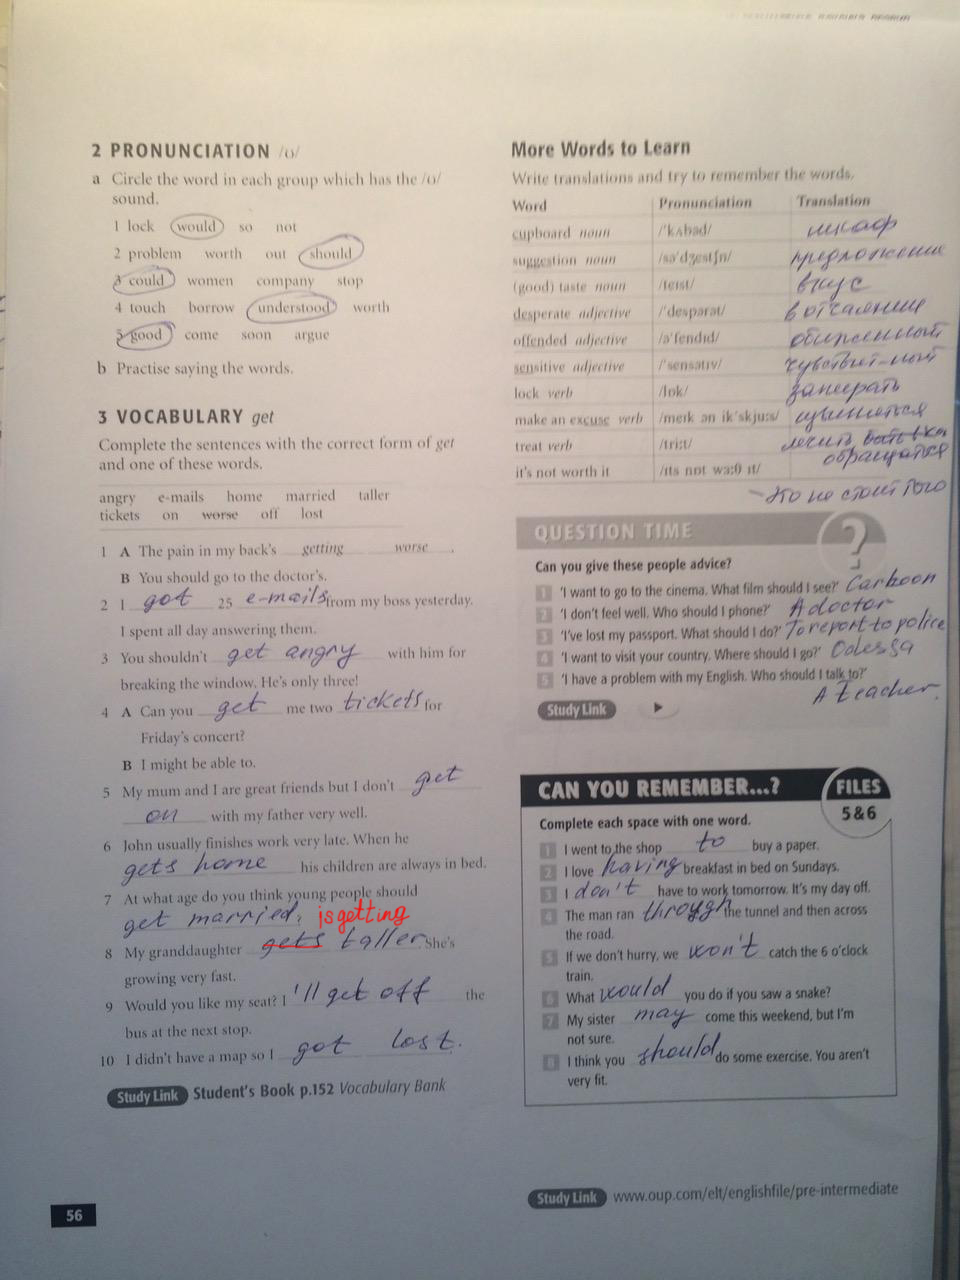 2 PRONUNCIATION /ʊ/
a Circle the word in each group which has the /ʊ/
sound.
1 lock would so not
2 problem worth out should
3 could women company stop
4 touch borrow understood worth
5 good come soon argue
b Practise saying the words.
3 VOCABULARY get
Complete the sentences with the correct form of get
and one of these words.
angry e-mails home married taller
tickets on worse off lost
1 A The pain in my back's getting worse.
B You should go to the doctor's.
2 I got 25 e-mails from my boss yesterday.
I spent all day answering them.
3 You shouldn't get angry with him for
breaking the window. He's only three!
4 A Can you get me two tickets for
Friday's concert?
B I might be able to.
5 My mum and I are great friends but I don't get
on with my father very well.
6 John usually finishes work very late. When he
gets home his children are always in bed.
7 At what age do you think young people should
get married?
is getting
8 My granddaughter gets taller. She's
growing very fast.
9 Would you like my seat? I 'll get off the
bus at the next stop.
10 I didn't have a map so I got lost.
Study Link Student's Book p.152 Vocabulary Bank
56
More Words to Learn
Write translations and try to remember the words.
Word Pronunciation Translation
cupboard noun /ˈkʌbəd/ шкаф
suggestion noun /səˈdʒestʃn/ предложение
(good) taste noun /teɪst/ вкус
desperate adjective /ˈdespərət/ в отчаянии
offended adjective /əˈfendɪd/ обиженный
sensitive adjective /ˈsensətɪv/ чувствит-ный
lock verb /lɒk/ запирать
make an excuse verb /meɪk ən ɪkˈskjuːs/ извиняться
treat verb /triːt/ лечить,
обращатся
it's not worth it /ɪts nɒt wɜːθ ɪt/
- это не стоит того
QUESTION TIME ?
Can you give these people advice?
1 'I want to go to the cinema. What film should I see?' Carboon
2 'I don't feel well. Who should I phone?' A doctor
3 'I've lost my passport. What should I do?' To report to police
4 'I want to visit your country. Where should I go?' Odessa
5 'I have a problem with my English. Who should I talk to?'
A teacher.
Study Link
CAN YOU REMEMBER...? FILES
5 & 6
Complete each space with one word.
1 I went to the shop to buy a paper.
2 I love having breakfast in bed on Sundays.
3 I don't have to work tomorrow. It's my day off.
4 The man ran throygh the tunnel and then across
the road.
5 If we don't hurry, we won't catch the 6 o'clock
train.
6 What would you do if you saw a snake?
7 My sister may come this weekend, but I'm
not sure.
8 I think you should do some exercise. You aren't
very fit.
Study Link www.oup.com/elt/englishfile/pre-intermediate